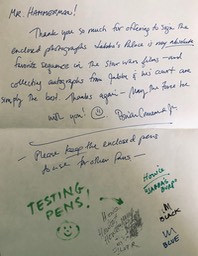 Mr. Hammerman!
Thank you so much for offering to sign the
enclosed photographs. Jabba's Palace is my absolute
favorite sequence in the Star Wars films - and
collecting autographs from Jabba & his court are
simply the best. Thanks again - May the Force be
with you! ☺
- Please keep the enclosed pens
to use for other fans -
TESTING
PENS!
Howie
"JABBA'S
Howie
SILVER
IN
BLACK
IN
BLUE